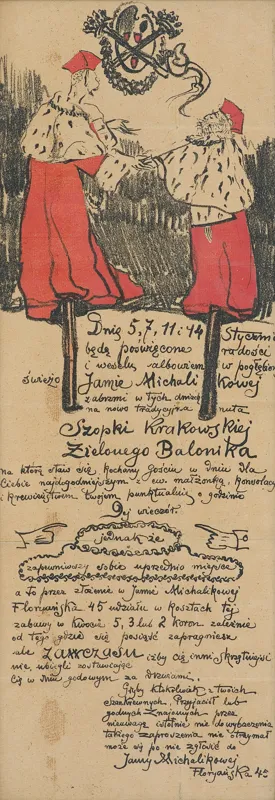 Dnie 5, 7, 11 i 14 Styczni
będą poświęcone radości
i weselu albowiem w pogłębion
świeżo Jamie Michalikowej
zabrzmi w tych dniach
na nowo tradycyjna nuta
Szopki Krakowskiej
Zielonego Balonika
na którą staw się Kochany Gościu w dniu dla
Ciebie najdogodniejszym z ew. małżonką, Konsolacy
i Krewieństwem twojem punktualnie o godzinie
9ej wieczór
jednakże
zapewniwszy sobie uprzednio miejsce
a to przez złożenie w Jamie Michalikowej
Floryańska 45 udziału w Kosztach tej
zabawy w kwocie 5, 3 lub 2 Koron zależnie
od tego gdzie się posiąść zapragniesz
ale ZAWCZASU iżby Cię inni skrzętniejsi
nie ubiegli zostawiając
Cię w dniu godowym za Drzwiami.
Gdyby Ktokolwiek z twoich
Krewnych, Przyjaciół lub
godnych Znajomych przez
nieuwagę istotnie nie do wybaczenia
takiego zaproszenia nie otrzymał
może się po nie zgłosić do
Jamy Michalikowej
Floryańska 45